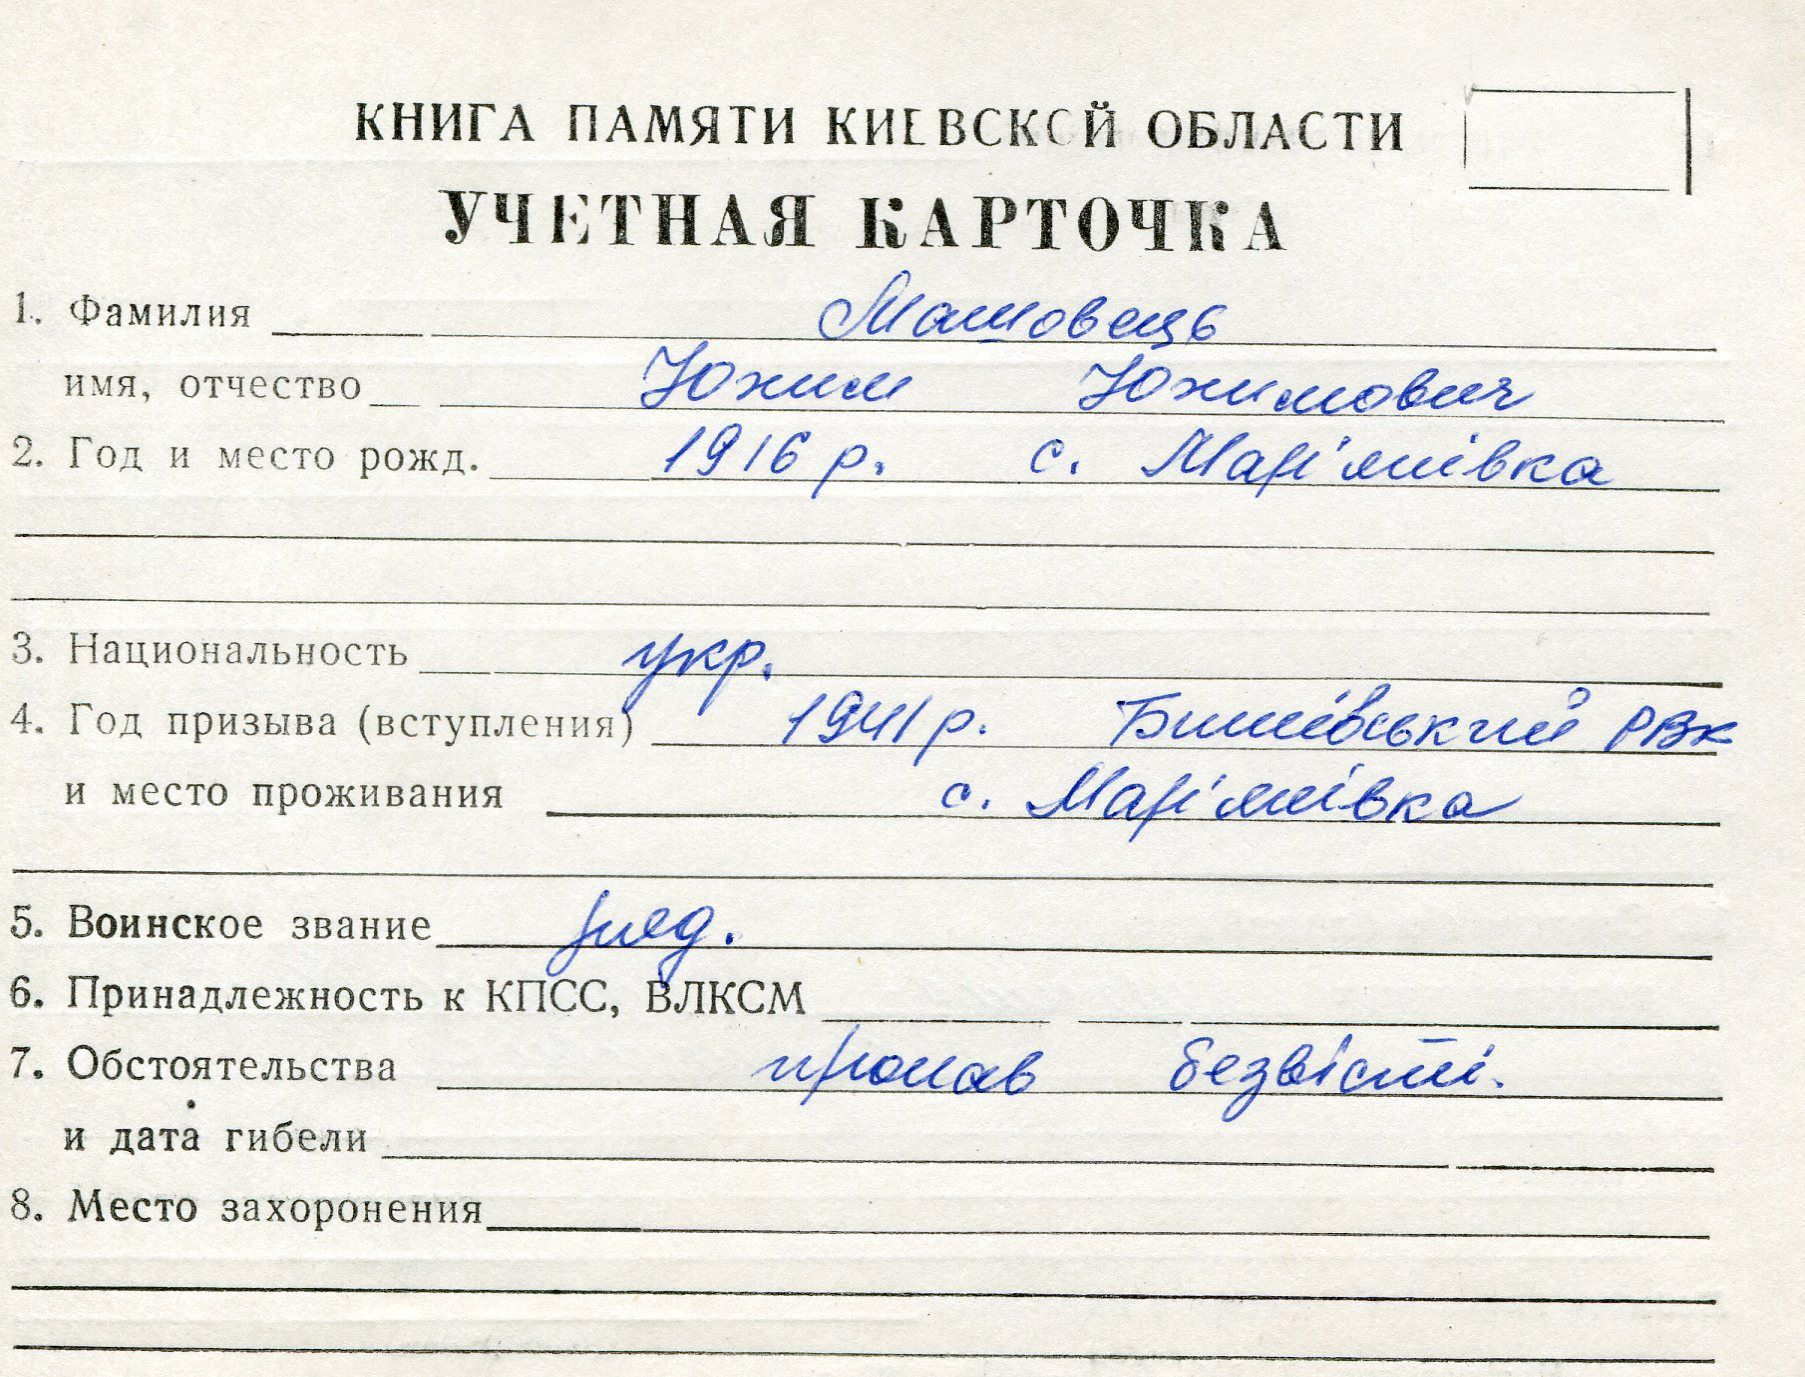 КНИГА ПАМЯТИ КИЕВСКОЙ ОБЛАСТИ
УЧЕТНАЯ КАРТОЧКА
1. Фамилия Машовець
имя, отчество Юхим Юхимович
2. Год и место рожд. 1916 р. с. Мар'янівка
3. Национальность укр.
4. Год призыва (вступления) 1941 р. Бишівський РВК
и место проживания с. Мар'янівка
5. Воинское звание ряд.
6. Принадлежность к КПСС, ВЛКСМ
7. Обстоятельства пропав безвісті.
и дата гибели
8. Место захоронения